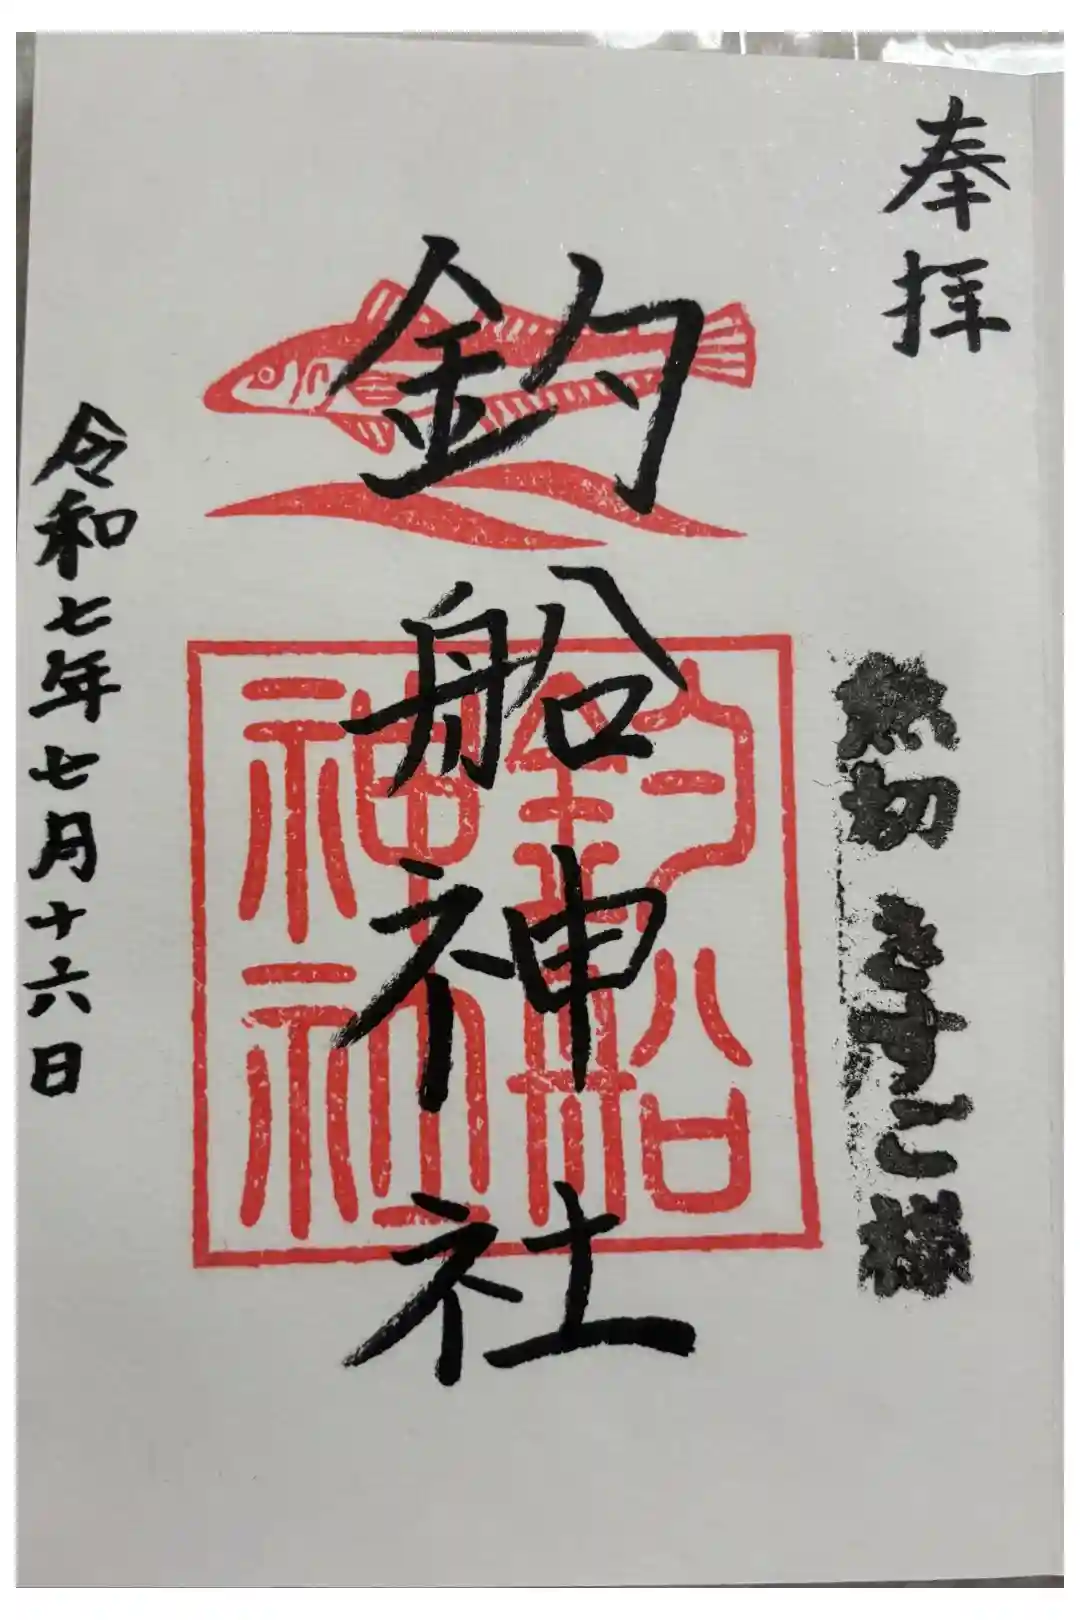 奉拝
切 きすこ様
釣船神社
釣船
神社
令和七年七月十六日